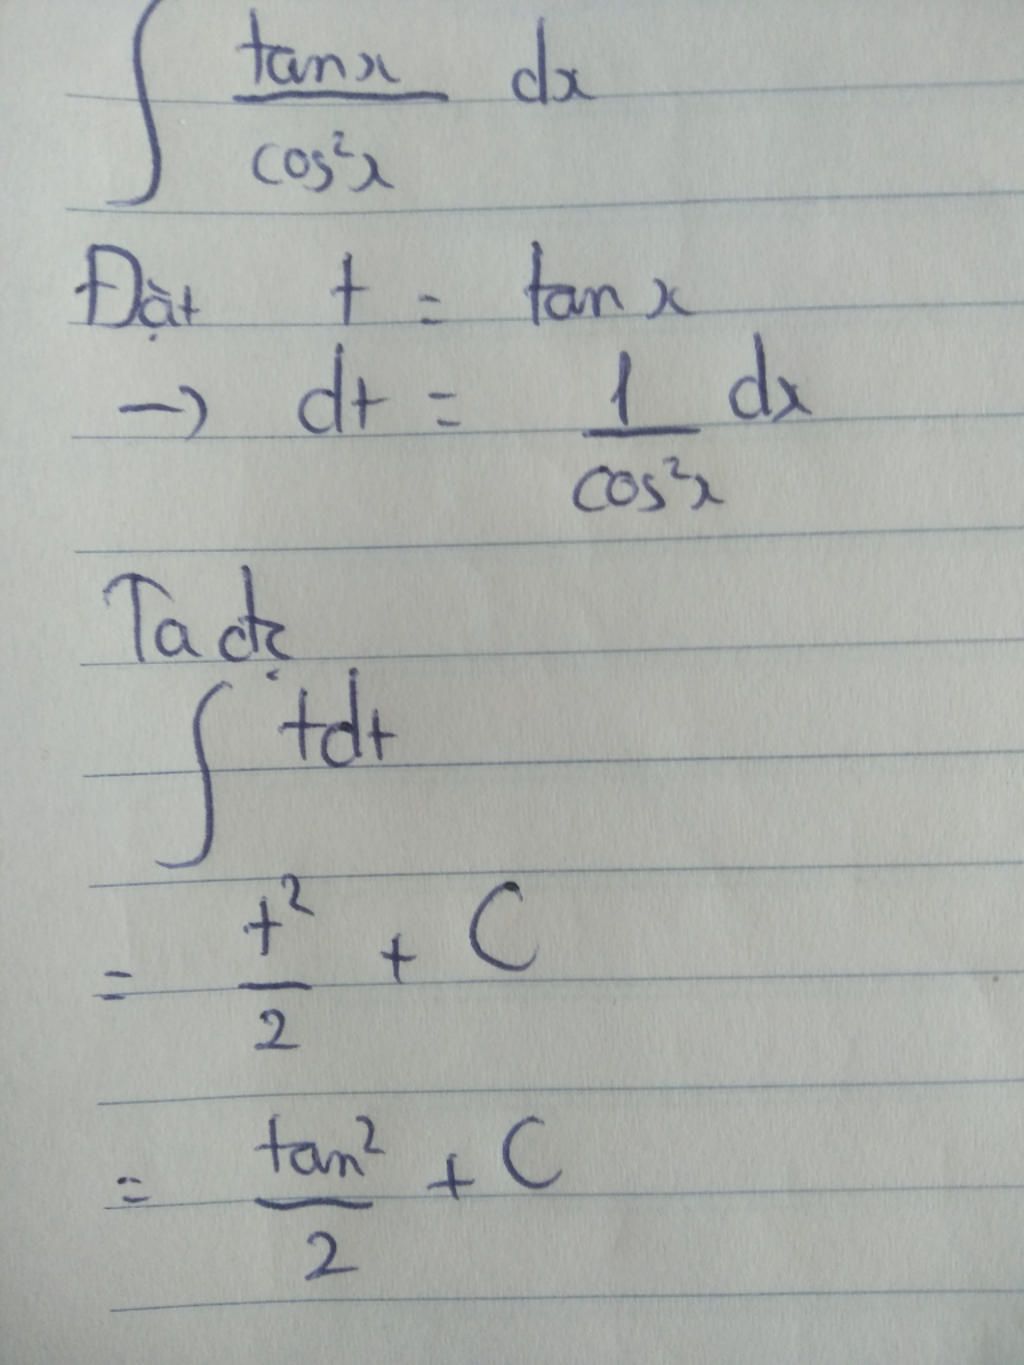 ∫ tanx/cos²x dx
Đặt t = tan x
→ dt = 1/cos²x dx
Ta đc
∫ tdt
= t²/2 + C
= tan²/2 + C